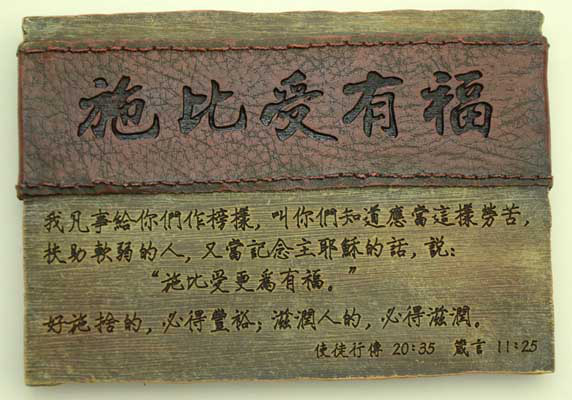 施比受有福
我凡事給你們作榜樣,叫你們知道應當這樣勞苦,
扶助軟弱的人,又當記念主耶穌的話,說:
“施比受更為有福。”
好施捨的,必得豐裕;滋潤人的,必得滋潤。
使徒行傳 20:35 箴言 11:25